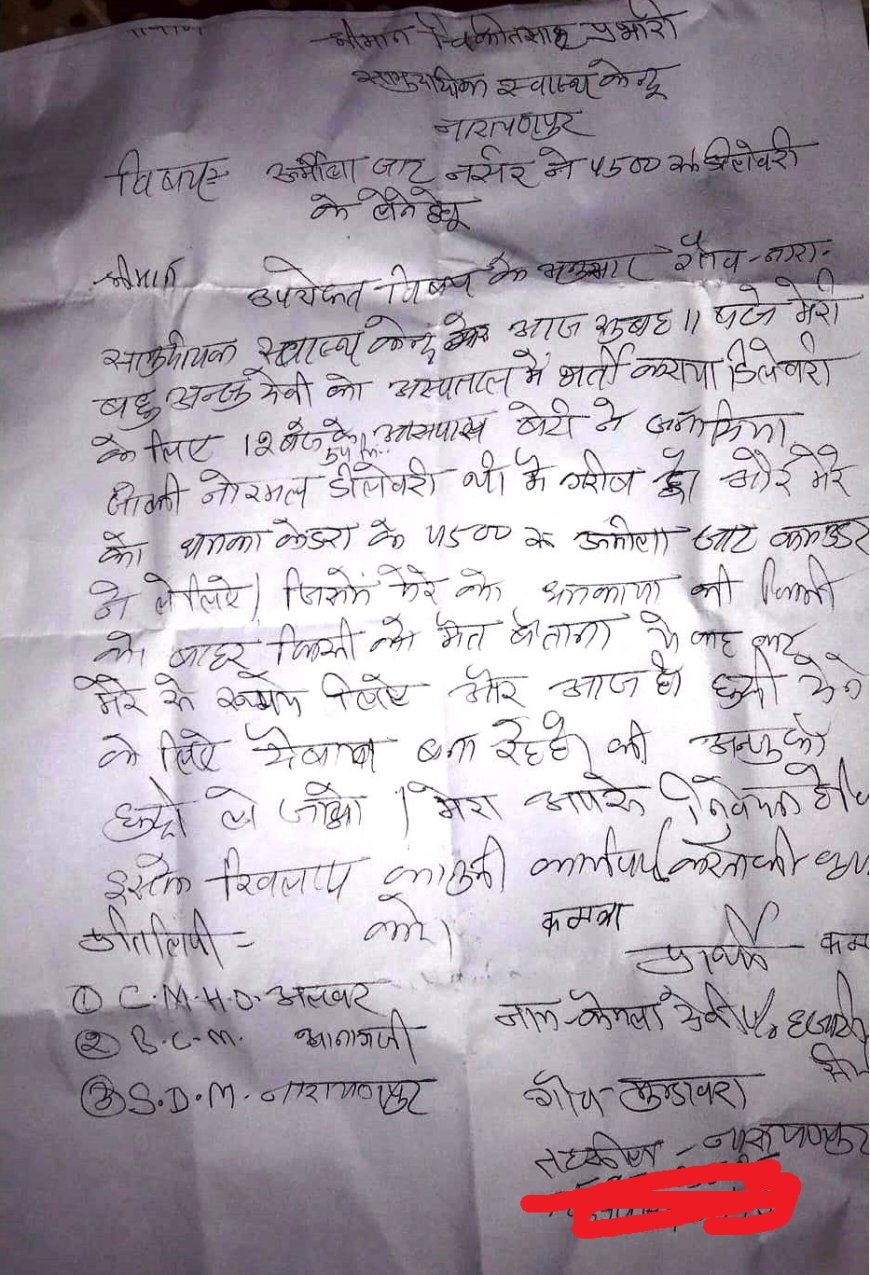 श्रीमान चिकीतसाक प्रभारी
सामुदायिक स्वास्थ केन्द्र
नारायणपुर
विषयः- उर्मीला जाट नर्सर ने 4500 रू डीलेवरी
के लेने हेतू
श्रीमान उपरोक्त विषय के अनुसार गाँव-नारा-
सामुदीयक स्वास्थ केन्द्र आज सुबह 11 बजे मेरी
बहु अन्जु देवी को अस्पताल में भर्ती कराया डिलेवरी
के लिए 12 बजे के आसपास बेटी ने जन्म दिया
जिसकी नोरमल डीलेवरी थी मै गरीब हूँ और मेरे
को धमका केडरा के 4500 रू उर्मीला जाट कम्पाउडर
ने ले लिए। जिसमें मेरे को धमकाया की किसी
को बाहर किसी को मत बताना ये कह कर
मेरे से रूपये लिए और आज ही छुटी देने
के लिए दबाव बना रहे है। की अन्जु को
छुटी ले जाओ। मेरा आपसे निवेदन है कि
इसके खिलाप कानुनी कार्यवाही करने की कृपा
प्रीतीलिपी = करे। कमला
प्रार्थी कम
① C.M.H.O. अलवर
नाम-कमला देवी W/o हजारी
② B.C.M. थानागाजी
③ S.D.M. नारायणपुर
गाँव-मुन्डावरा
तहसील - नारायणपुर